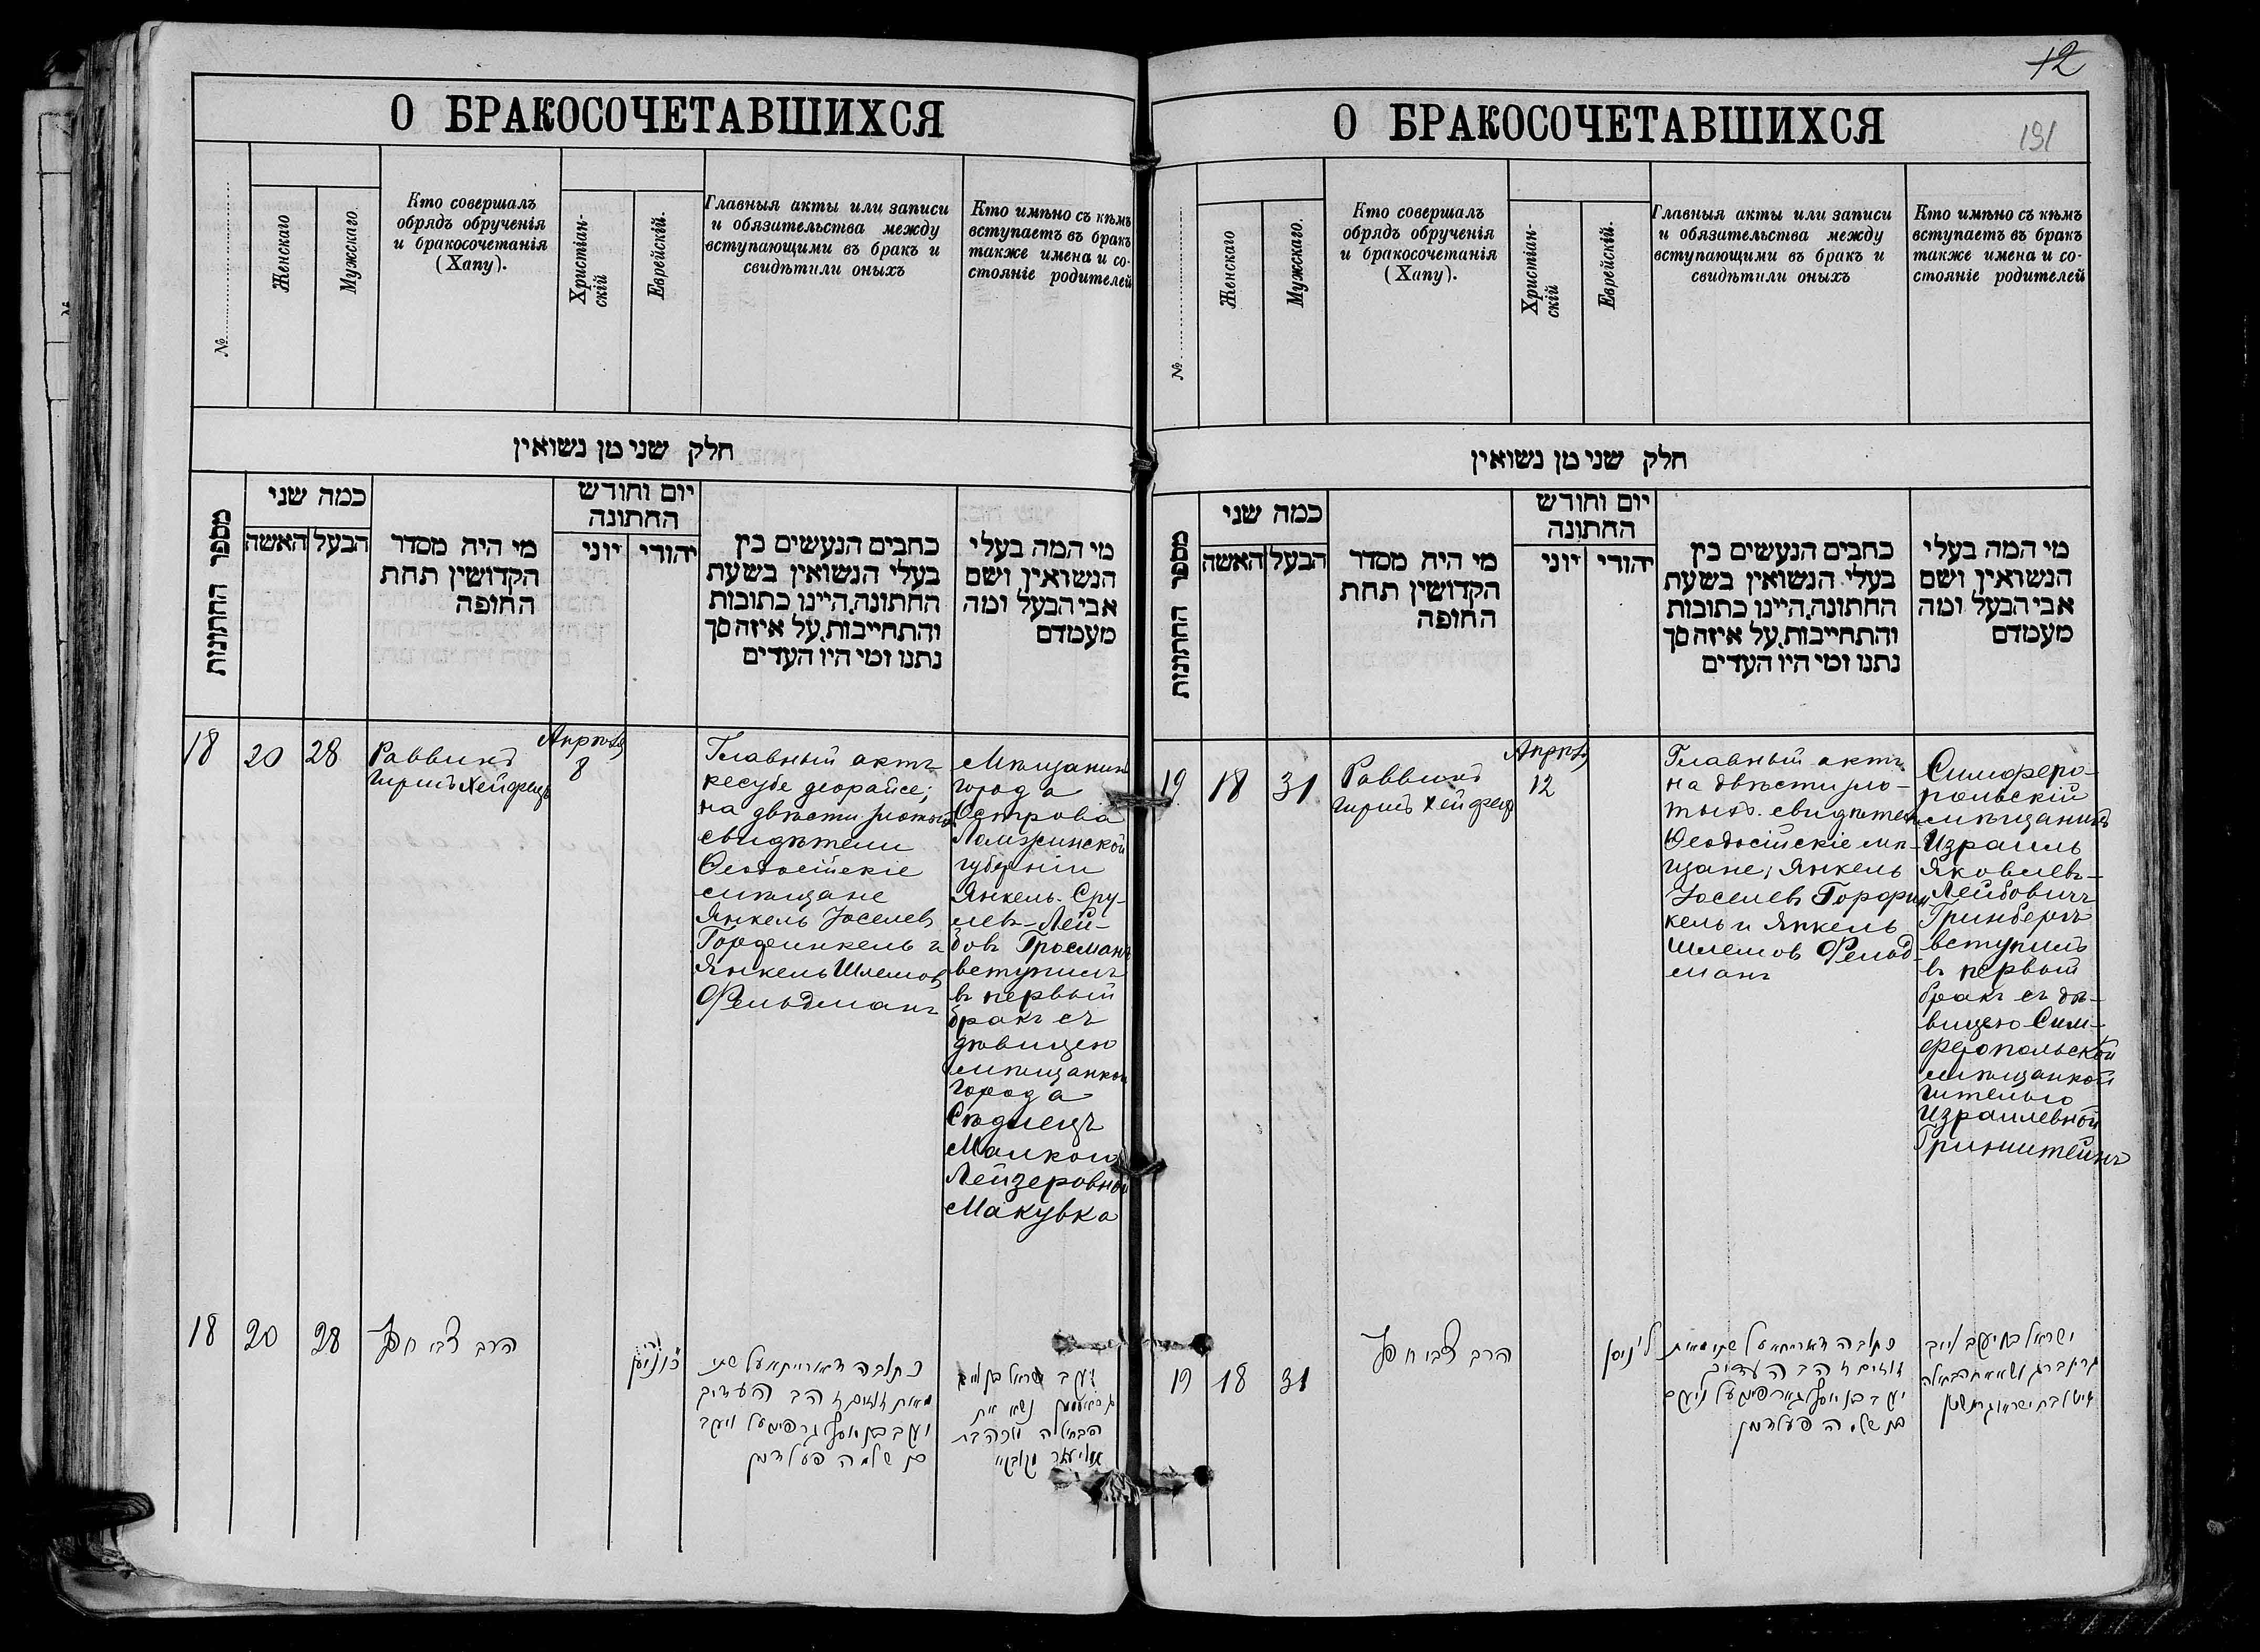 12
О БРАКОСОЧЕТАВШИХСЯ
№
Женскаго
Мужскаго
Кто совершалъ
обрядъ обрученія
и бракосочетанія
(Хапу).
Христіан-
скій
Еврейскій.
Главныя акты или записи
и обязательства между
вступающими въ бракъ и
свидѣтили оныхъ
Кто имѣно съ кѣмъ
вступаетъ въ бракъ
также имена и со-
стояніе родителей
חלק שני מן נשואין
מספר החתונות
כמה שני
האשה
הבעל
מי היה מסדר
הקדושין תחת
החופה
יום וחודש
החתונה
יוני
יהודי
כתבים הנעשים בין
בעלי הנשואין בשעת
החתונה, היינו כתובות
והתחייבות, על איזה סך
נתנו ומי היו העדים
מי המה בעלי
הנשואין ושם
אבי הבעל ומה
מעמדם
18
20
28
Раввинъ
Гиршъ Хейфецъ
Апрѣля
8
Главный актъ
кесубе деорайсе;
на двѣсти злотыхъ
свидѣтели
Ѳеодосійскіе
мѣщане
Янкель Іоселев
Горфинкель и
Янкель Шлемов
Фельдманъ
Мѣщанинъ
города
Острова
Ломжинской
губерніи
Янкель-Сру-
левъ-Лей-
бовъ Гросманъ
вступилъ
въ первый
бракъ съ
дѣвицею
мѣщанкой
города
Сѣдлецъ
Малкою
Лейзеровной
Макувка
18
20
28
הרב צבי חפץ
כ׳ ניסן
כתובה דאורייתא על שתי
מאות זוזים זהב העדים
יעקב בן יוסף גורפינקעל ויעקב
בן שלמה פעלדמן
יעקב ישראל בן לייב
גראסמאן נשא את
הבתולה מלכה בת
אליעזר מקובקא
О БРАКОСОЧЕТАВШИХСЯ
191
№
Женскаго
Мужскаго.
Кто совершалъ
обрядъ обрученія
и бракосочетанія
(Хапу).
Христіан-
скій
Еврейскій.
Главныя акты или записи
и обязательства между
вступающими въ бракъ и
свидѣтили оныхъ
Кто имѣно съ кѣмъ
вступаетъ въ бракъ
также имена и со-
стояніе родителей
חלק שני מן נשואין
מספר החתונות
כמה שני
האשה
הבעל
מי היה מסדר
הקדושין תחת
החופה
יום וחודש
החתונה
יוני
יהודי
כתבים הנעשים בין
בעלי הנשואין בשעת
החתונה, היינו כתובות
והתחייבות, על איזה סך
נתנו ומי היו העדים
מי המה בעלי
הנשואין ושם
אבי הבעל ומה
מעמדם
19
18
31
Раввинъ
Гиршъ Хейфецъ
Апрѣля
12
Главный актъ
на двѣсти зло-
тыхъ. свидѣтели
Ѳеодосійскіе мѣ-
щане; Янкель
Іоселевъ Горфин
кель и Янкель
Шлемов Фельд-
манъ
Симферо-
польскій
мѣщанинъ
Израиль
Яковлевъ-
Лейбовичъ
Гринбергъ
вступилъ
въ первый
бракъ съ дѣ-
вицею Сим-
феропольской
мѣщанкой
Гителью
Израилевной
Гринштейнъ
19
18
31
הרב צבי חפץ
ל׳ ניסן
כתובה דאורייתא על שתי מאות
זוזים זהב העדים
יעקב בן יוסף גורפינקעל ויעקב
בן שלמה פעלדמן
ישראל בן יעקב לייב
גרינברג נשא את הבתולה
גיטל בת ישראל גרינשטיין